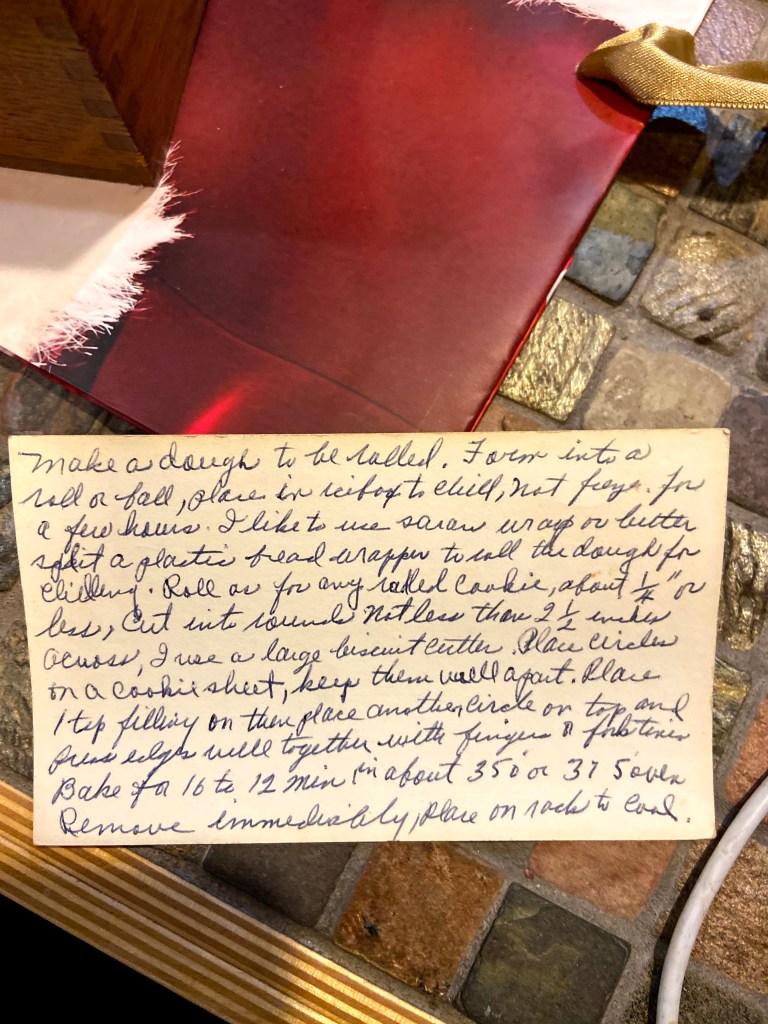 Make a dough to be rolled. Form into a
roll or ball, place in icebox to chill, not freeze. for
a few hours. I like to use saran wrap or better
split a plastic bread wrapper to roll the dough for
chilling. Roll as for any rolled cookie, about 1/4" or
less, Cut into rounds Not less than 2 1/2 inches
across, I use a large biscuit cutter. Place circles
on a cookie sheet, keep them well apart. Place
1 tsp filling on then place another circle on top and
press edges well together with fingers or fork tines
Bake for 10 to 12 min in about 350 or 375 oven
Remove immediately, place on rack to cool.